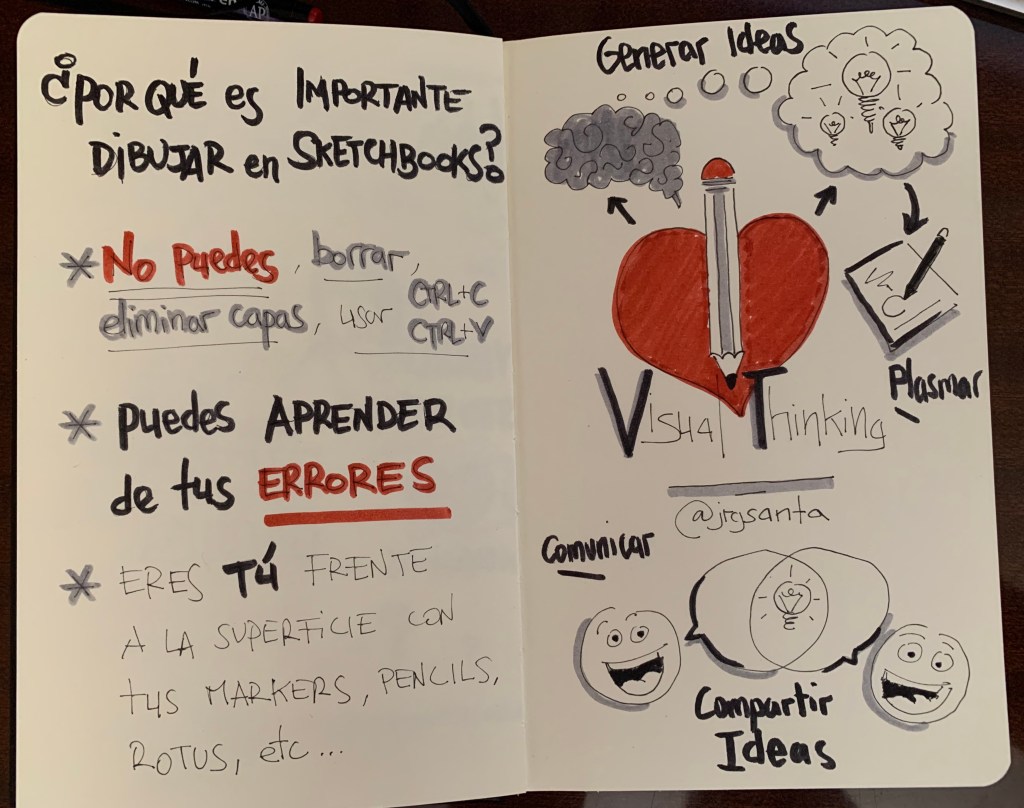 ¿POR QUÉ es IMPORTANTE
DIBUJAR en SKETCHBOOKS?
* No puedes, borrar,
eliminar capas, usar CTRL+C
CTRL+V
* puedes APRENDER
de tus ERRORES
* ERES TÚ FRENTE
A LA SUPERFICIE CON
tus MARKERS, PENCILS,
ROTUS, etc...
Generar Ideas
Plasmar
Visual Thinking
@jrgsanta
Comunicar
Compartir
Ideas